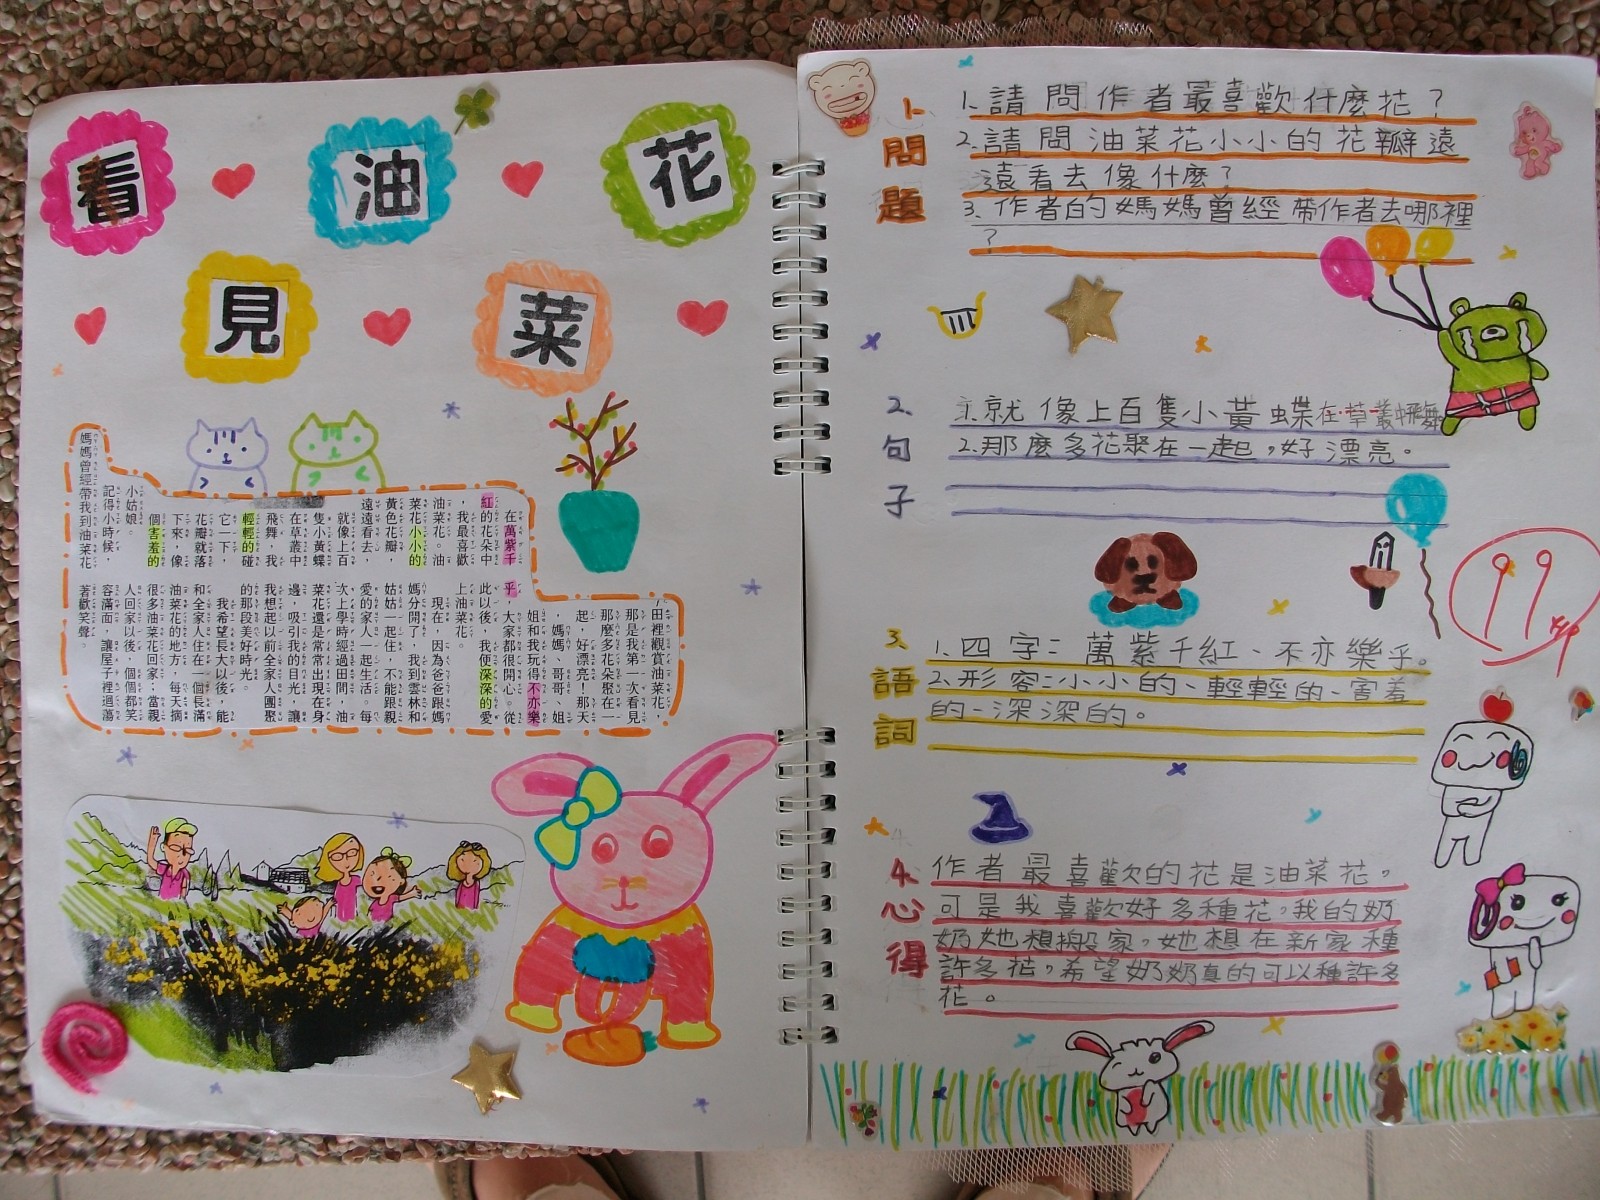 看見油菜花
在萬紫千
紅的花朵中
，我最喜歡
油菜花。油
菜花小小的
黃色花瓣，
遠遠看去，
就像上百
隻小黃蝶
在草叢中
飛舞，我
輕輕的碰
它一下，
花瓣就落
下來，像
個害羞的
小姑娘。
記得小時候，
媽媽曾經帶我到油菜花
田裡觀賞油菜花，
那是我第一次看見
那麼多花朵聚在一
起，好漂亮！那天
，媽媽、哥哥、姐
姐和我玩得不亦樂
乎，大家都很開心。從
此以後，我便深深的愛
上油菜花。
現在，因為爸爸跟媽
媽分開了，我到雲林和
姑姑一起住，不能跟親
愛的家人一起生活。每
次上學時經過田間，油
菜花還是常常出現在身
邊，吸引我的目光，讓
我想起以前全家人團聚
的那段美好時光。
我希望長大以後，能
和全家人住在一個長滿
油菜花的地方，每天摘
很多油菜花回家；當親
人回家以後，個個都笑
容滿面，讓屋子裡迴蕩
著歡笑聲。
1.問題
1.請問作者最喜歡什麼花？
2.請問油菜花小小的花瓣遠
遠看去像什麼？
3.作者的媽媽曾經帶作者去哪裡
？
2.句子
1.就像上百隻小黃蝶在草叢中飛舞
2.那麼多花聚在一起，好漂亮。
99
3.語詞
1.四字：萬紫千紅、不亦樂乎。
2.形容：小小的、輕輕的、害羞
的、深深的。
4.心得
作者最喜歡的花是油菜花。
可是我喜歡好多種花，我的奶
奶她想搬家，她想在新家種
許多花，希望奶奶真的可以種許多
花。